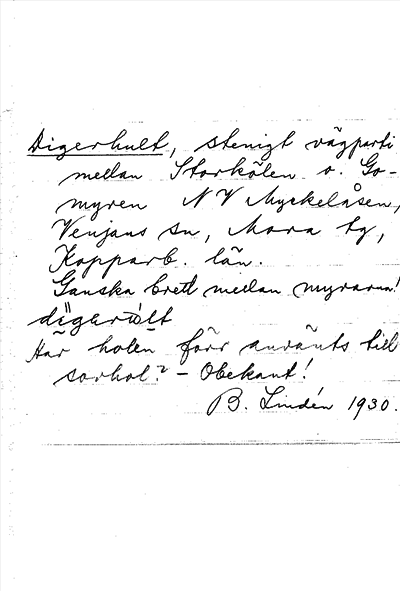 Digerhult, stenigt vägparti
mellan Storkölen o. Go-
myren NV Myckelåsen,
Venjans sn, Mora tg,
Kopparb. län.
Ganska brett mellan myrarna!
Har holen förr använts till
sorhol? - Obekant!
B. Lindén 1930.